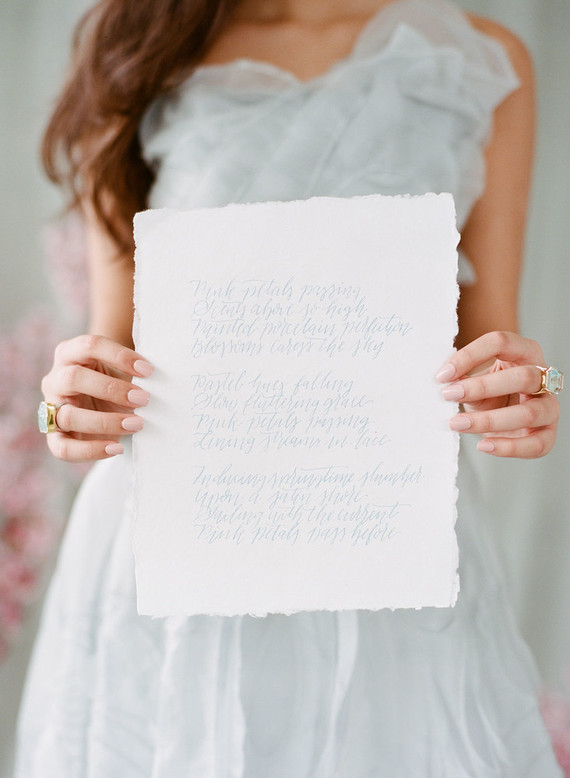 Pink petals passing
Scents above so high
Painted porcelain perfection
Blossoms caress the sky
Pastel hues falling
Slow fluttering grace
Pink petals passing
Lining streams in lace
springtime slumber
Upon a shore
with the current
Pink petals pass before